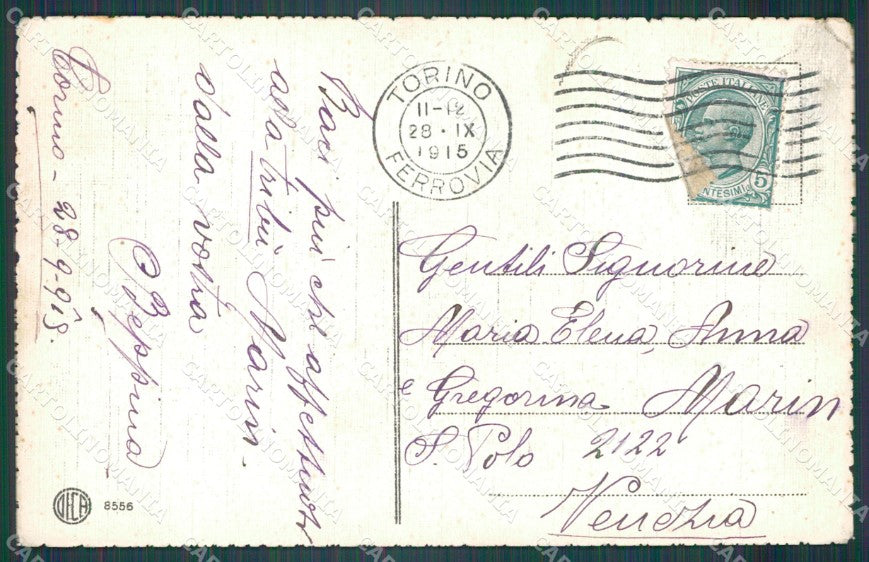 Torino - 28-9-915.
Baci più che affettuosi
alla tribù Marin.
dalla vostra
Beppina
TORINO
11-12
28 · IX
1915
FERROVIA
POSTE ITALIANE
CENTESIMI 5
Gentili Signorine
Maria Elena, Anna
e Gregorina Marin
S. Polo 2122
Venezia
8556
CARTOLINOMANIA